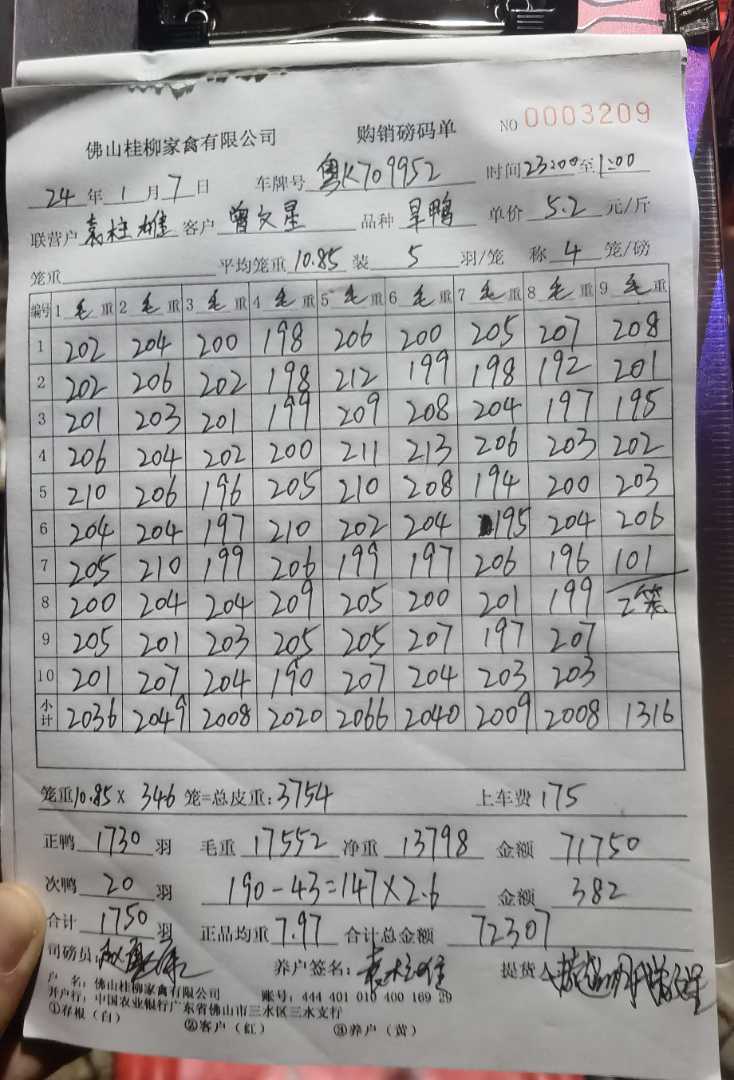 佛山桂柳家禽有限公司 购销磅码单 NO 0003209
24 年 1 月 7 日 车牌号 粤K709952 时间 23:00 至 1:00
联营户 袁柱雄 客户 曾文星 品种 旱鸭 单价 5.2 元/斤
笼重 平均笼重 10.85 装 5 羽/笼 称 4 笼/磅
编号 1 毛 重 2 毛 重 3 毛 重 4 毛 重 5 毛 重 6 毛 重 7 毛 重 8 毛 重 9 毛 重
1 202 204 200 198 206 200 205 207 208
2 202 206 202 198 212 199 198 192 201
3 201 203 201 199 209 208 204 197 195
4 206 204 202 200 211 213 206 203 202
5 210 206 196 205 210 208 194 200 203
6 204 204 197 210 202 204 195 204 206
7 205 210 199 206 199 197 206 196 101
8 200 204 204 209 205 200 201 199 2笼
9 205 201 203 205 205 207 197 207
10 201 207 204 190 207 204 203 203
小计 2036 2049 2008 2020 2066 2040 2009 2008 1316
笼重 10.85 x 346 笼=总皮重: 3754 上车费 175
正鸭 1730 羽 毛重 17552 净重 13798 金额 71750
次鸭 20 羽 190-43=147×2.6 金额 382
合计 1750 羽 正品均重 7.97 合计总金额 72307
司磅员: 养户签名: 袁柱雄 提货人
户 名: 佛山桂柳家禽有限公司 账号: 444 401 010 400 169 29
开户行: 中国农业银行广东省佛山市三水区三水支行
①存根（白） ②客户（红） ③养户（黄）